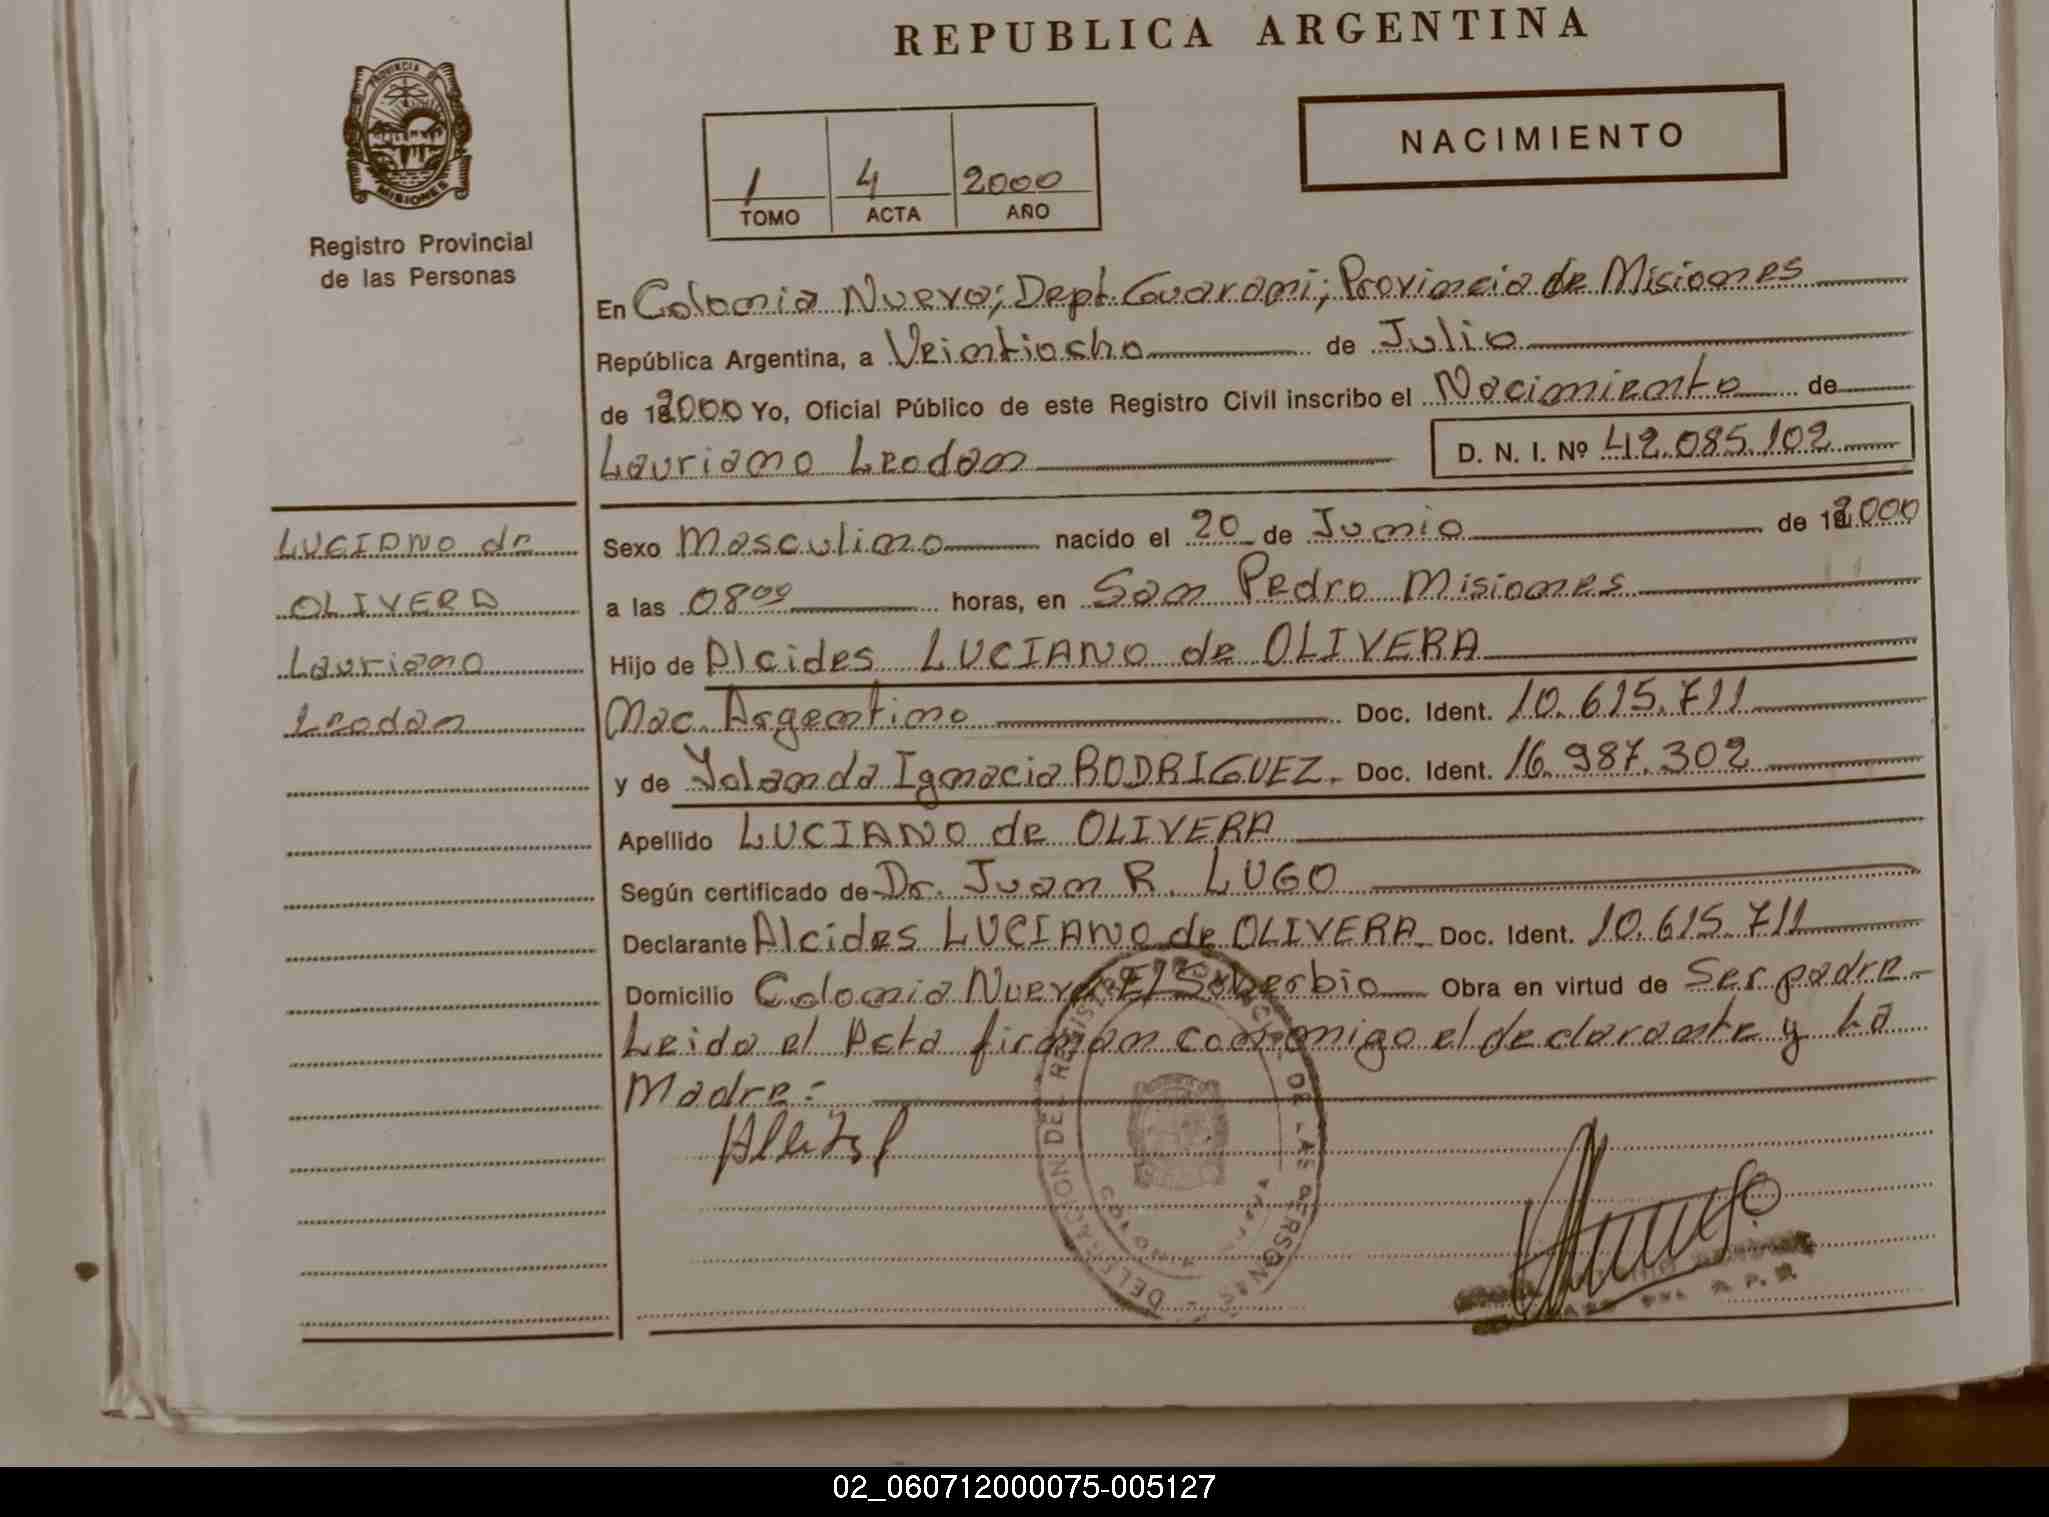 REPUBLICA ARGENTINA
PROVINCIA DE
MISIONES
Registro Provincial
de las Personas
1 4 2000
TOMO ACTA AÑO
NACIMIENTO
En Colonia Nueva; Dept. Guarani; Provincia de Misiones
República Argentina, a Veintiocho de Julio
de 2000 Yo, Oficial Público de este Registro Civil inscribo el Nacimiento de
Lauriano Leodan
D. N. I. Nº 42.085.102
LUCIANO de
OLIVERA
Lauriano
Leodan
Sexo Masculino nacido el 20 de Junio de 2000
a las 08⁰⁰ horas, en San Pedro Misiones
Hijo de Alcides LUCIANO de OLIVERA
Nac. Argentino Doc. Ident. 10.615.711
y de Yolanda Ignacia RODRIGUEZ. Doc. Ident. 16.987.302
Apellido LUCIANO de OLIVERA
Según certificado de Dr. Juan R. LUGO
Declarante Alcides LUCIANO de OLIVERA. Doc. Ident. 10.615.711
Domicilio Colonia Nueva El Soberbio Obra en virtud de Ser padre
Leido el Acta firman conmigo el declarante y La
Madre:
DELEGACION DEL REGISTRO PROVINCIAL DE LAS PERSONAS
COLONIA NUEVA
02_060712000075-005127